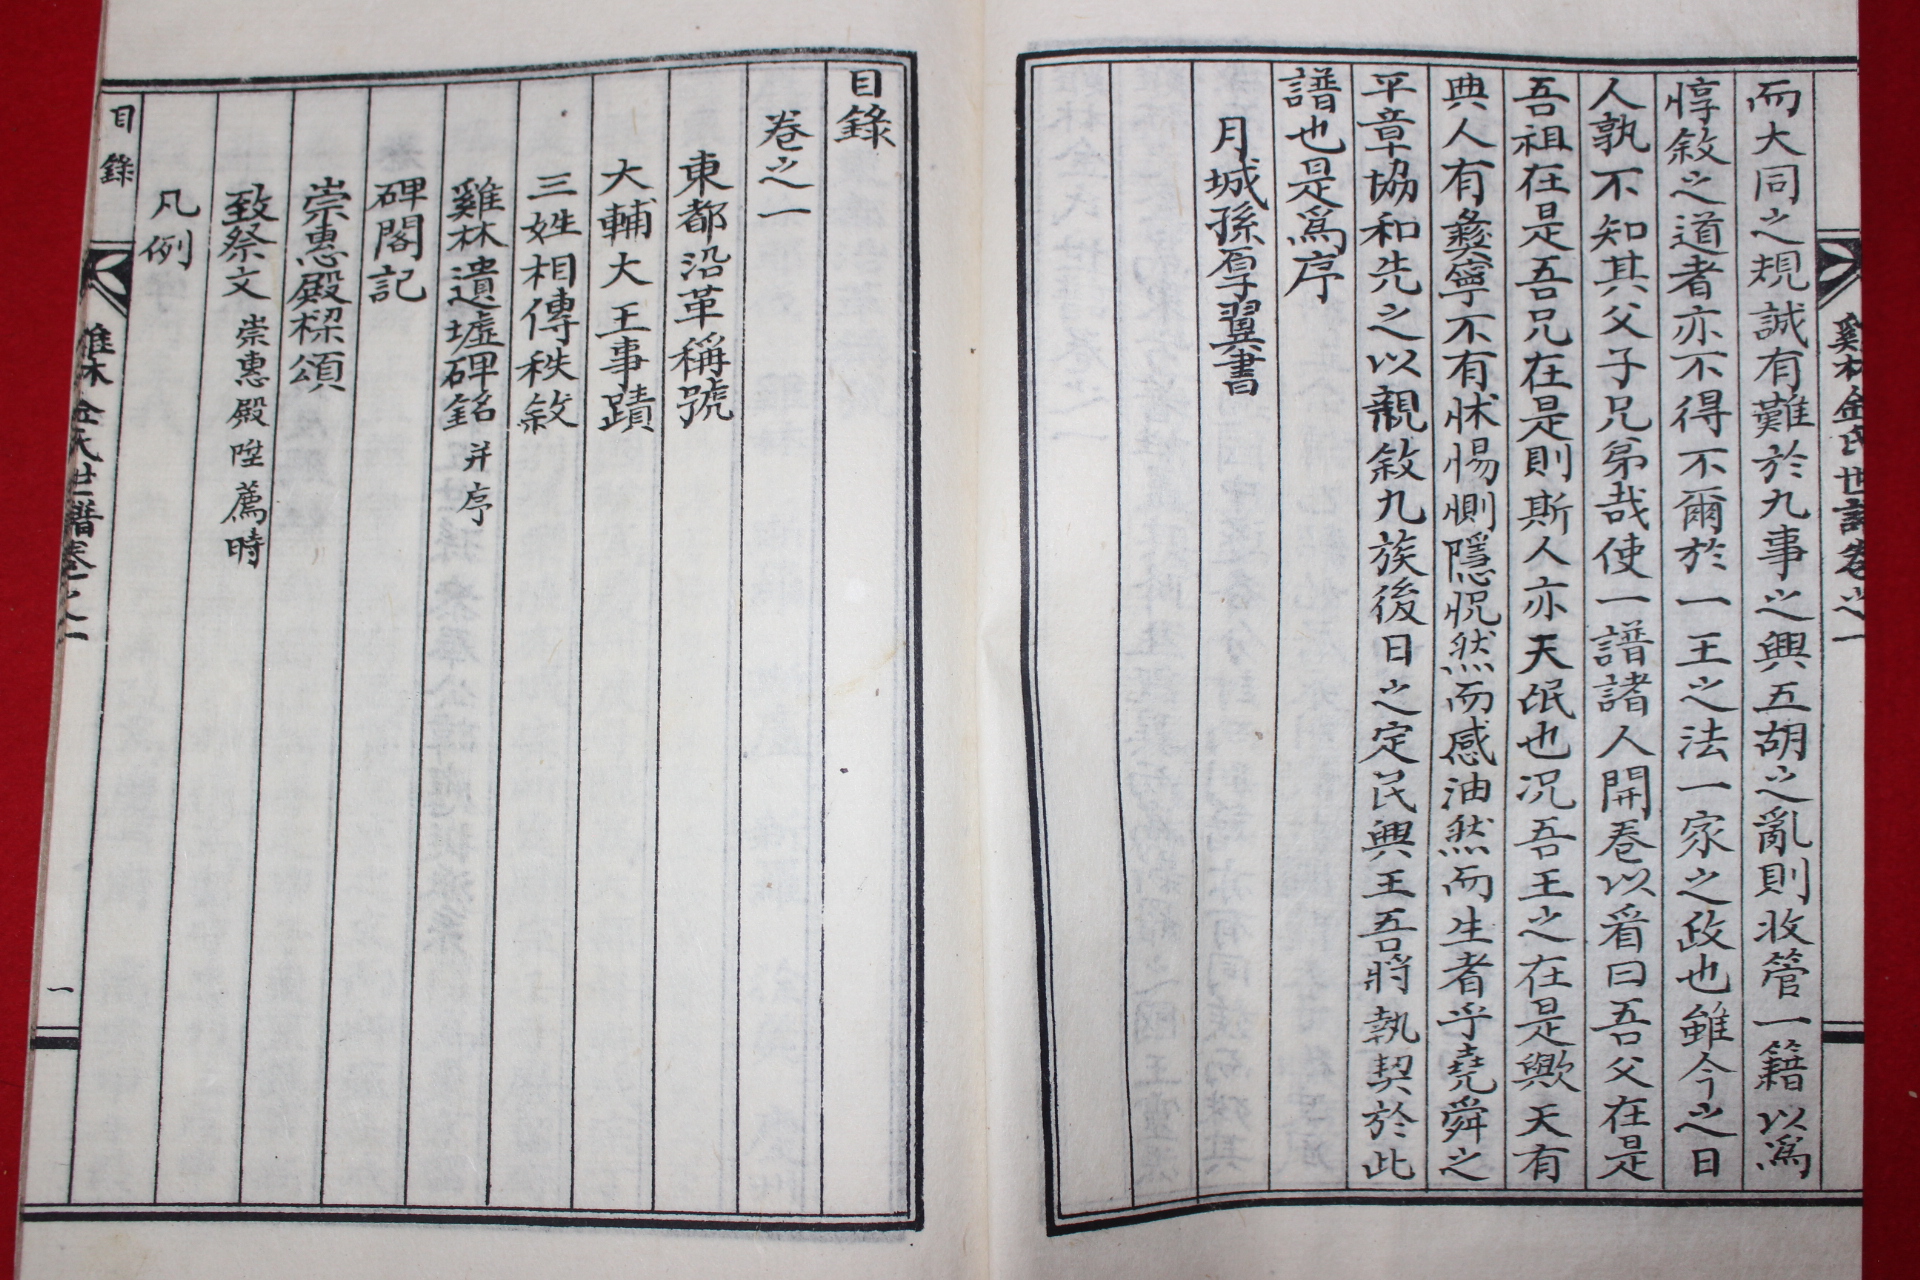 雞林金氏世譜卷之一
而大同之規誠有難於九事之興五胡之亂則收管一籍以爲
惇敘之道者亦不得不爾於一王之法一家之政也雖今之日
人孰不知其父子兄弟哉使一譜諸人開卷以看曰吾父在是
吾祖在是吾兄在是則斯人亦天氓也况吾王之在是歟天有
典人有彝寧不有怵惕惻隱怳然而感油然而生者乎堯舜之
平章協和先之以親敘九族後日之定民興王吾將執契於此
譜也是爲序
月城孫厚翼書
目錄
卷之一
東都沿革稱號
大輔大王事蹟
三姓相傳秩敘
雞林遺墟碑銘 并序
碑閣記
崇惠殿樑頌
致祭文 崇惠殿陞薦時
凡例
目錄
雞林金氏世譜卷之一
一